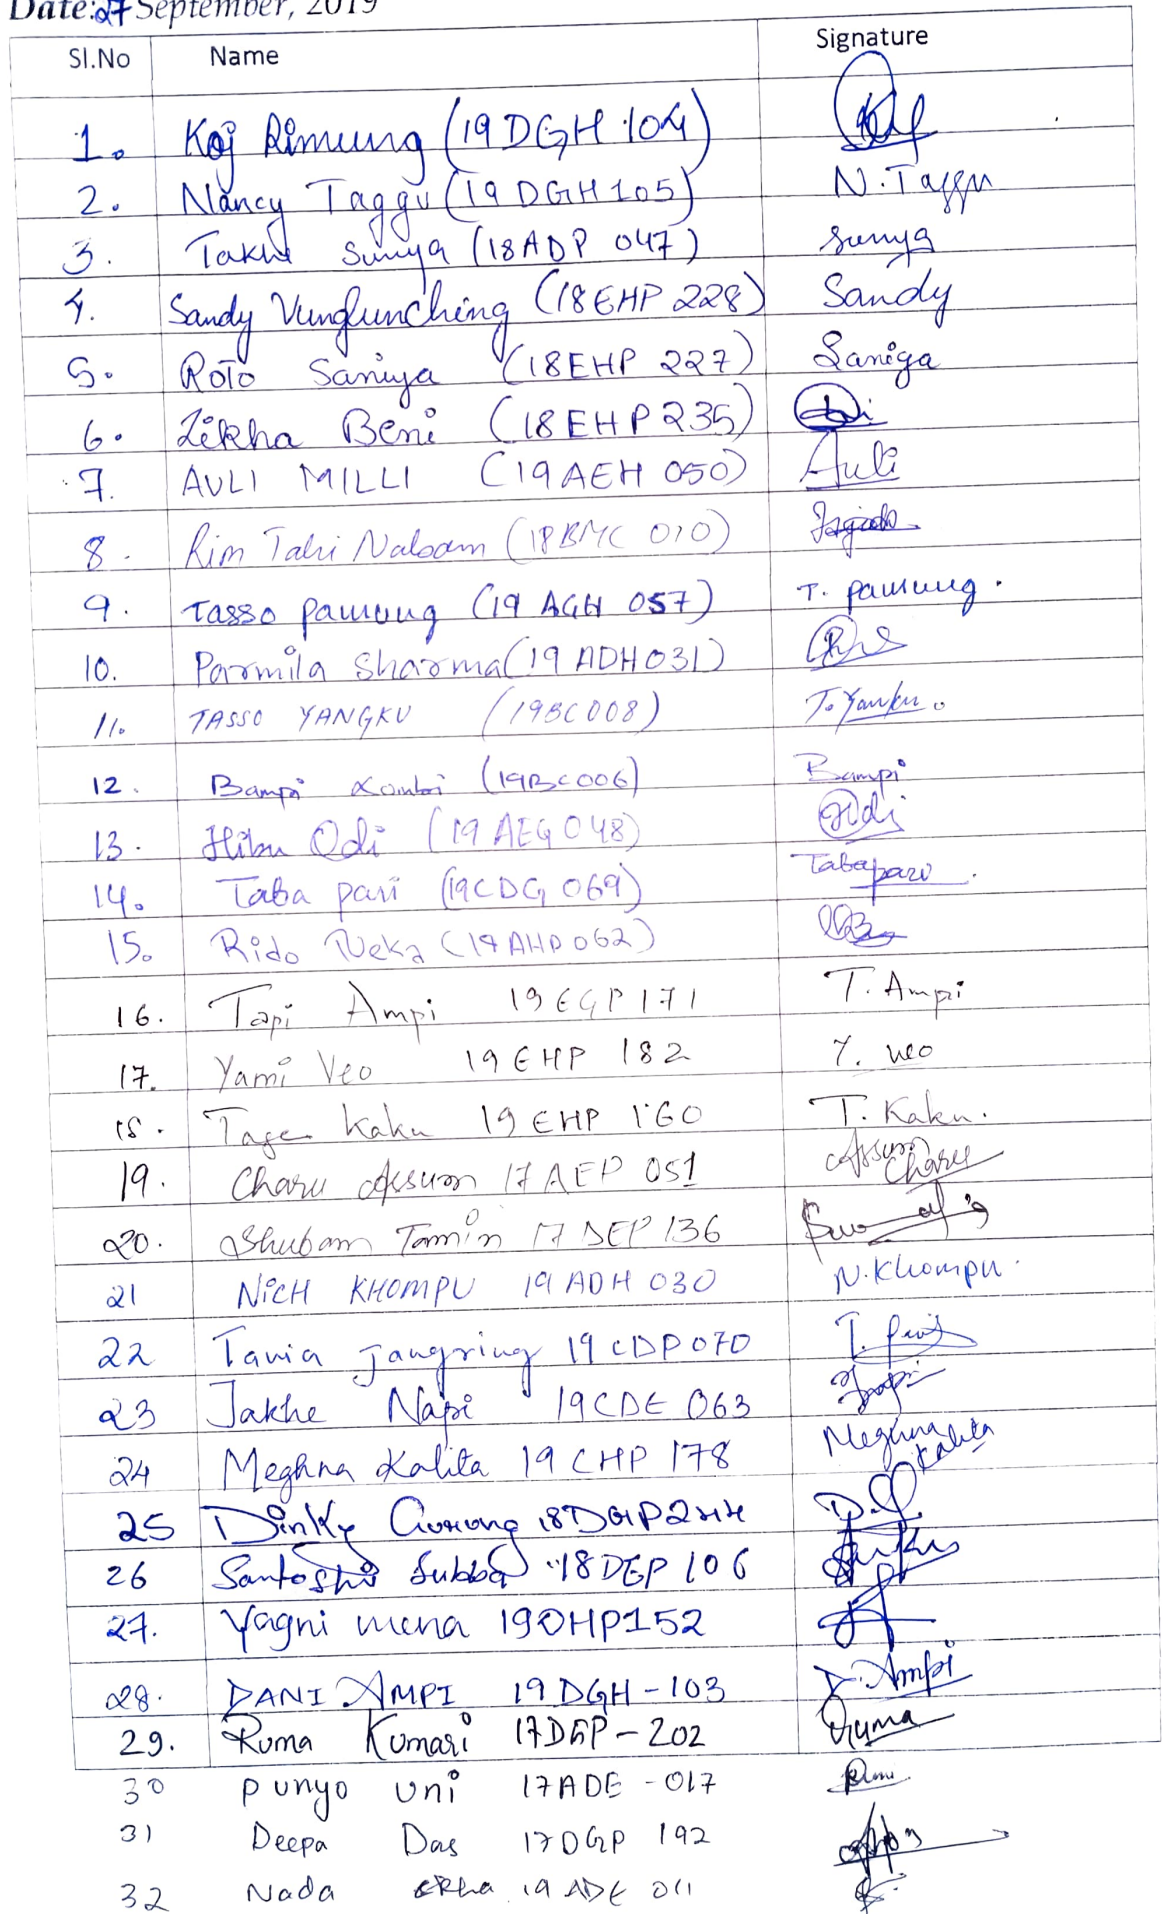 Date: 27 September, 2019
Sl.No Name Signature
1. Koj Rimung (19 DGH 104)
2. Nancy Taggu (19 DGH 105) N. Taggu
3. Takhe Sunya (18 ADP 047) Sunya
4. Sandy Vunglunching (18 EHP 228) Sandy
5. Roto Saniya (18 EHP 227) Saniya
6. Likha Beni (18 EHP 235)
7. AULI MILLI (19 AEH 050) Auli
8. Rim Tahi Nabam (18 BMC 010)
9. Tasso pamung (19 AGH 057) T. pamung.
10. Parmila Sharma (19 ADH 031)
11. TASSO YANGKU (19BC008) T. Yanku.
12. Bampi Kombi (19BC006) Bampi
13. Hibu Odi (19 AEG 048) Odi
14. Taba pari (19CDG 069) Taba pari.
15. Rido Neka (19 AHP 062)
16. Tapi Ampi 19 EGP 171 T. Ampi
17. Yami Veo 19 EHP 182 Y. Veo
18. Tage Kaku 19 EHP 160 T. Kaku.
19. Charu Assum 17 AEP 051 Assum Charu
20. Shubam Tamin 17 DEP 136
21 NICH KHOMPU 19 ADH 030 N. Khompu.
22 Tania Jangring 19 CDP 070
23 Jakhe Napi 19CDE 063
24 Meghna Kalita 19 CHP 178 Meghna Kalita
25 Dinky Gurung 18DGP244
26 Santoshi Subba 18 DEP 106
27. Yagni mena 19DHP152
28. DANI AMPI 19 DGH - 103 D. Ampi
29. Ruma Kumari 17DGP - 202 Ruma
30 Punyo Uni 17ADE - 017
31 Deepa Das 17 DGP 192
32 Nada 19 ADE 011